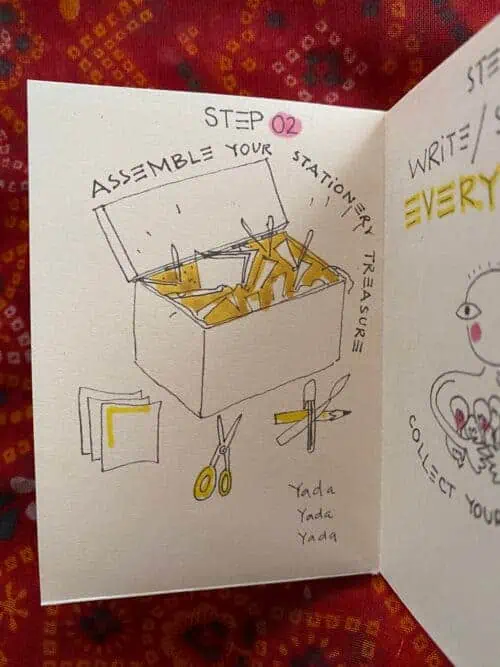 STEP 02
ASSEMBLE YOUR STATIONERY TREASURE
Yada
Yada
Yada
STE
WRITE/
EVERY
COLLECT YOUR